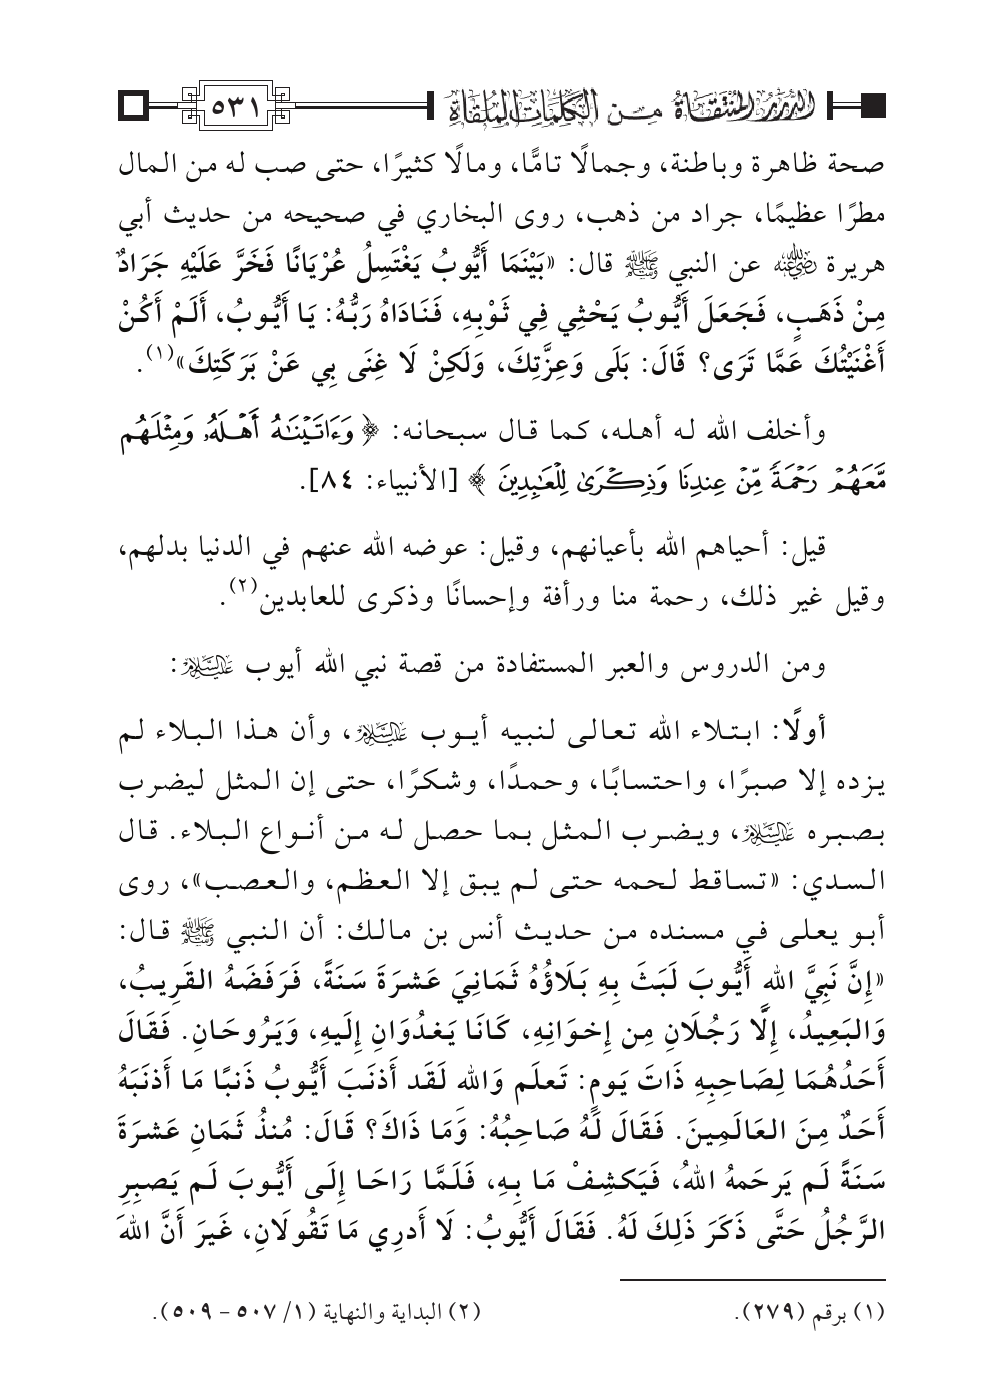 الدرر المنتقاة من الكلمات الملقاة
٥٣١
صحة ظاهرة وباطنة، وجمالًا تامًّا، ومالًا كثيرًا، حتى صب له من المال
مطرًا عظيمًا، جراد من ذهب، روى البخاري في صحيحه من حديث أبي
هريرة رضي الله عنه عن النبي ﷺ قال: «بَيْنَمَا أَيُّوبُ يَغْتَسِلُ عُرْيَانًا فَخَرَّ عَلَيْهِ جَرَادٌ
مِنْ ذَهَبٍ، فَجَعَلَ أَيُّوبُ يَحْثِي فِي ثَوْبِهِ، فَنَادَاهُ رَبُّهُ: يَا أَيُّوبُ، أَلَمْ أَكُنْ
أَغْنَيْتُكَ عَمَّا تَرَى؟ قَالَ: بَلَى وَعِزَّتِكَ، وَلَكِنْ لَا غِنَى بِي عَنْ بَرَكَتِكَ»(١).
وأخلف الله له أهله، كما قال سبحانه: ﴿ وَءَاتَيْنَٰهُ أَهْلَهُۥ وَمِثْلَهُم
مَّعَهُمْ رَحْمَةً مِّنْ عِندِنَا وَذِكْرَىٰ لِلْعَٰبِدِينَ ﴾ [الأنبياء: ٨٤].
قيل: أحياهم الله بأعيانهم، وقيل: عوضه الله عنهم في الدنيا بدلهم،
وقيل غير ذلك، رحمة منا ورأفة وإحسانًا وذكرى للعابدين(٢).
ومن الدروس والعبر المستفادة من قصة نبي الله أيوب عليه السلام:
أولًا: ابتلاء الله تعالى لنبيه أيوب عليه السلام، وأن هذا البلاء لم
يزده إلا صبرًا، واحتسابًا، وحمدًا، وشكرًا، حتى إن المثل ليضرب
بصبره عليه السلام، ويضرب المثل بما حصل له من أنواع البلاء. قال
السدي: «تساقط لحمه حتى لم يبق إلا العظم، والعصب»، روى
أبو يعلى في مسنده من حديث أنس بن مالك: أن النبي ﷺ قال:
«إِنَّ نَبِيَّ اللهِ أَيُّوبَ لَبَثَ بِهِ بَلَاؤُهُ ثَمَانِيَ عَشرَةَ سَنَةً، فَرَفَضَهُ القَرِيبُ،
وَالبَعِيدُ، إِلَّا رَجُلَانِ مِن إِخوَانِهِ، كَانَا يَغدُوَانِ إِلَيهِ، وَيَرُوحَانِ. فَقَالَ
أَحَدُهُمَا لِصَاحِبِهِ ذَاتَ يَومٍ: تَعلَم وَاللهِ لَقَد أَذنَبَ أَيُّوبُ ذَنبًا مَا أَذنَبَهُ
أَحَدٌ مِنَ العَالَمِينَ. فَقَالَ لَهُ صَاحِبُهُ: وَمَا ذَاكَ؟ قَالَ: مُنذُ ثَمَانِ عَشرَةَ
سَنَةً لَم يَرحَمهُ اللهُ، فَيَكشِفْ مَا بِهِ، فَلَمَّا رَاحَا إِلَى أَيُّوبَ لَم يَصبِرِ
الرَّجُلُ حَتَّى ذَكَرَ ذَلِكَ لَهُ. فَقَالَ أَيُّوبُ: لَا أَدرِي مَا تَقُولَانِ، غَيرَ أَنَّ اللهَ
(١) برقم (٢٧٩).
(٢) البداية والنهاية (١/ ٥٠٧ - ٥٠٩).